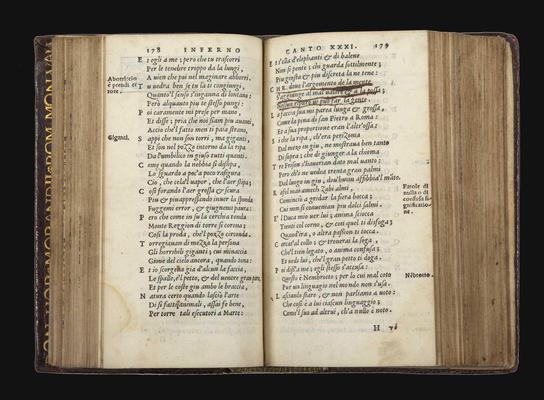 178 INFERNO
E t egli a me; pero che tu trascorri
Per le tenebre troppo da la lungi,
A uien che poi nel maginare abborri.
T u uedrai ben se tu la ti congiungi,
Quanto'l senso s'inganna di lontano:
Però alquanto piu te stesso pungi:
P oi caramente mi prese per mano;
Et disse; pria che noi siam piu auanti
Accio che'l fatto men ti paia strano,
S appi che non son torri, ma giganti;
Et son nel pozzo intorno da la ripa
Da l'umbilico in giuso tutti quanti.
C ome quando la nebbia si dissipa,
Lo sguardo a poc'a poco rafigura
Cio, che cela'l uapor, che l'aer stipa;
C osi forando l'aer grossa et scura
Piu e piu appressando inuer la sponda
Fuggemi error, et giugnemi paura:
P ero che come in su la cerchia tonda
Monte Reggion di torre si corona;
Cosi la proda, che'l pozzo circonda,
T orreggiauan di mezza la persona
Gli horribili giganti; cui minaccia
Gioue del cielo ancora, quando tona:
E t io scorgeua gia d'alcun la faccia,
Le spalle, e'l petto, et del uentre gran parte,
Et per le coste giu ambo le braccia.
N atura certo quando lasciò l'arte
Di si fatti animali, assai fe bene,
Per torre tali esecutori a Marte:
Abborrire
è prendi
rore.
Giganti.
CANTO XXXI. 179
E t s'ella d'elephanti et di balene
Non si pente; chi guarda sottilmente;
Piu giusta et piu discreta la ne tene:
C he doue l'argomento de la mente
S'aggiunge al mal uolere et a la possa;
Nessun riparo ui puo far la gente.
L a faccia sua mi parea lunga et grossa,
Come la pina di san Pietro a Roma:
Et a sua proportione eran l'altr'ossa:
S i che la ripa, ch'era perizoma
Dal mezo in giu, ne mostraua ben tanto
Di sopra; che di giunger a la chioma
T re Frison s'hauerian dato mal uanto:
Però ch'i ne uedea trenta gran palmi
Dal luogo in giu, dou'huom affibbia'l māto.
R afel mai amech zabi almi,
Cominciò a gridar la fiera bocca;
Cui non si conuenian piu dolci salmi.
E 'l Duca mio uer lui; anima sciocca
Tienti col corno, et con quel ti disfoga;
Quand'ira, o altra passion ti tocca.
C ercat'al collo et trouerai la soga,
Che'l tien legato, o anima confusa;
Et uedi lui, che'l gran petto ti doga.
P oi disse a me; egli stesso s'accusa:
Questi è Nembrotto; per lo cui mal coto
Pur un linguaggio nel mondo non s'usa.
L asciamlo stare, et non parliamo a uoto:
Che cosi è a lui ciascun linguaggio;
Come'l suo ad altrui, ch'a nullo è noto.
Parole di
nulla o di
confusa si
gnificatio-
ne.
Nébrotto.
H